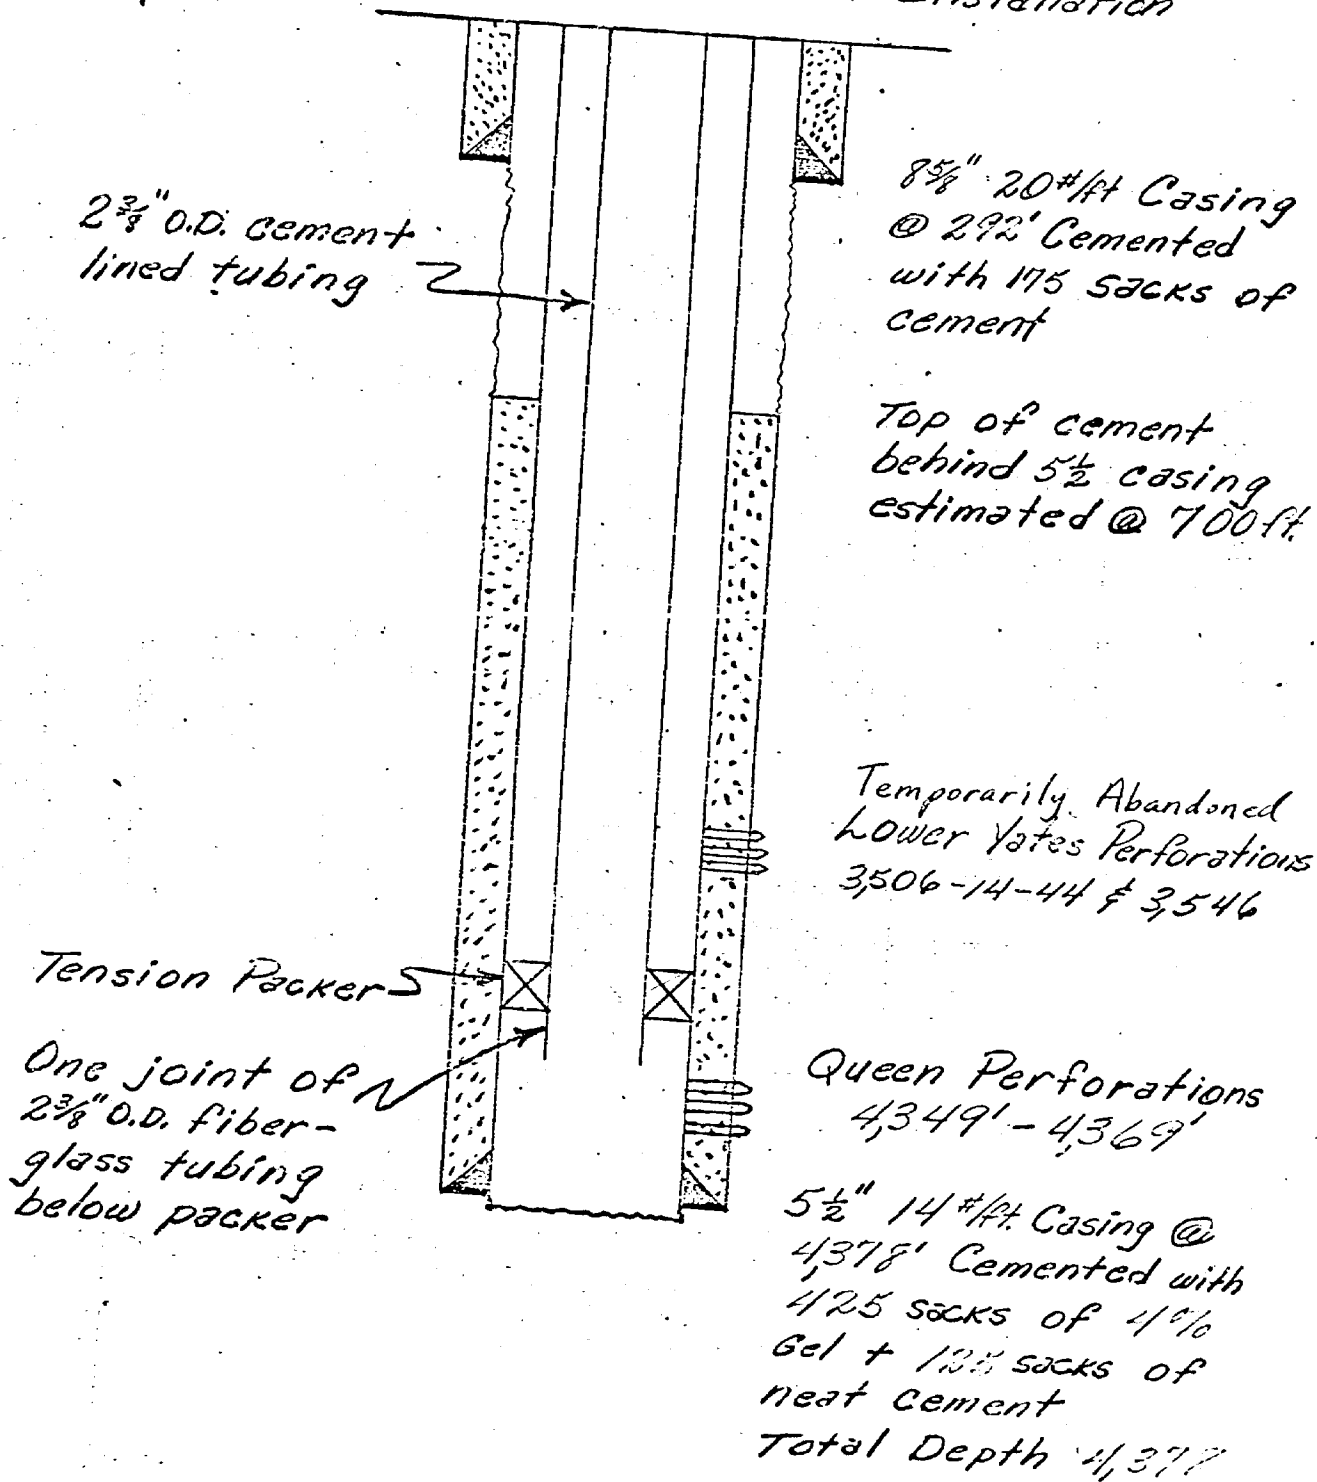 Installation
2 3/8" O.D. cement
lined tubing
8 5/8" 20#/ft Casing
@ 292' Cemented
with 175 sacks of
cement
Top of cement
behind 5 1/2 casing
estimated @ 700 ft.
Temporarily Abandoned
Lower Yates Perforations
3,506-14-44 & 3,546
Tension Packer
One joint of
2 3/8" O.D. fiber-
glass tubing
below packer
Queen Perforations
4,349' - 4,369'
5 1/2" 14 #/ft. Casing @
4,378' Cemented with
425 sacks of 4%
Gel + sacks of
neat cement
Total Depth